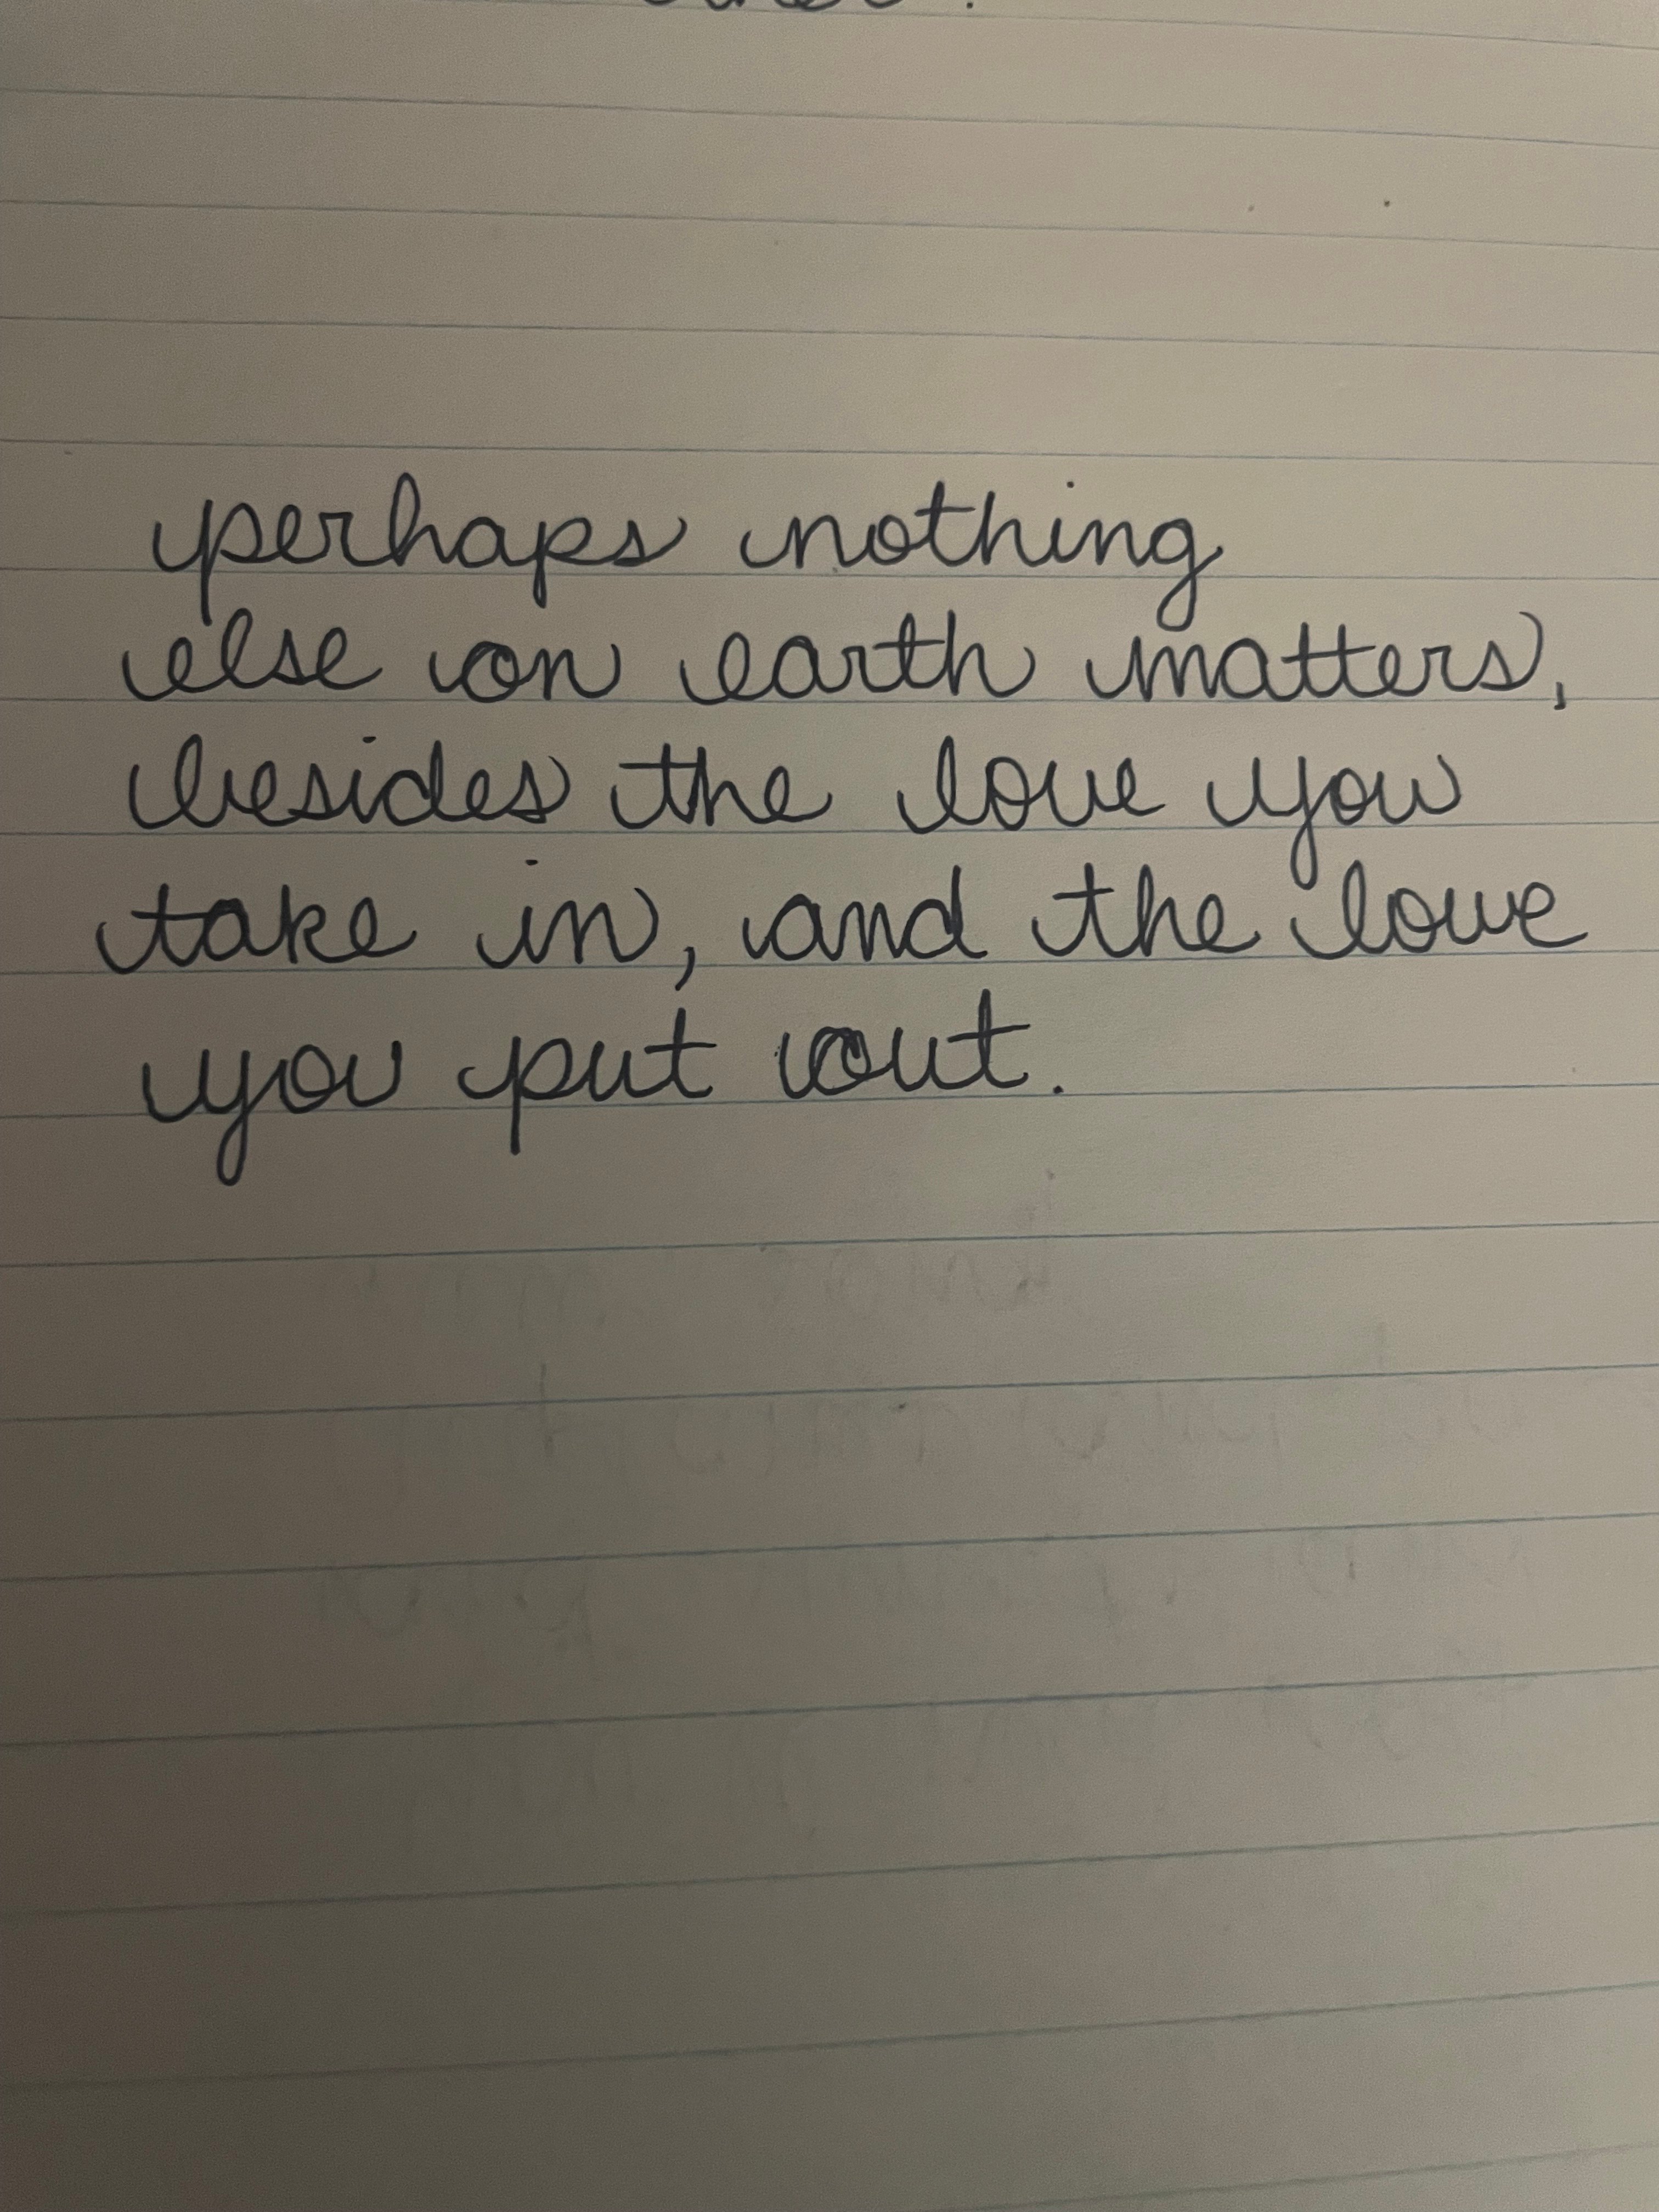 perhaps nothing
else on earth matters,
besides the love you
take in, and the love
you put out.